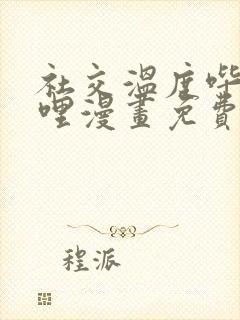 社交温度哔
哩漫画免费
程派